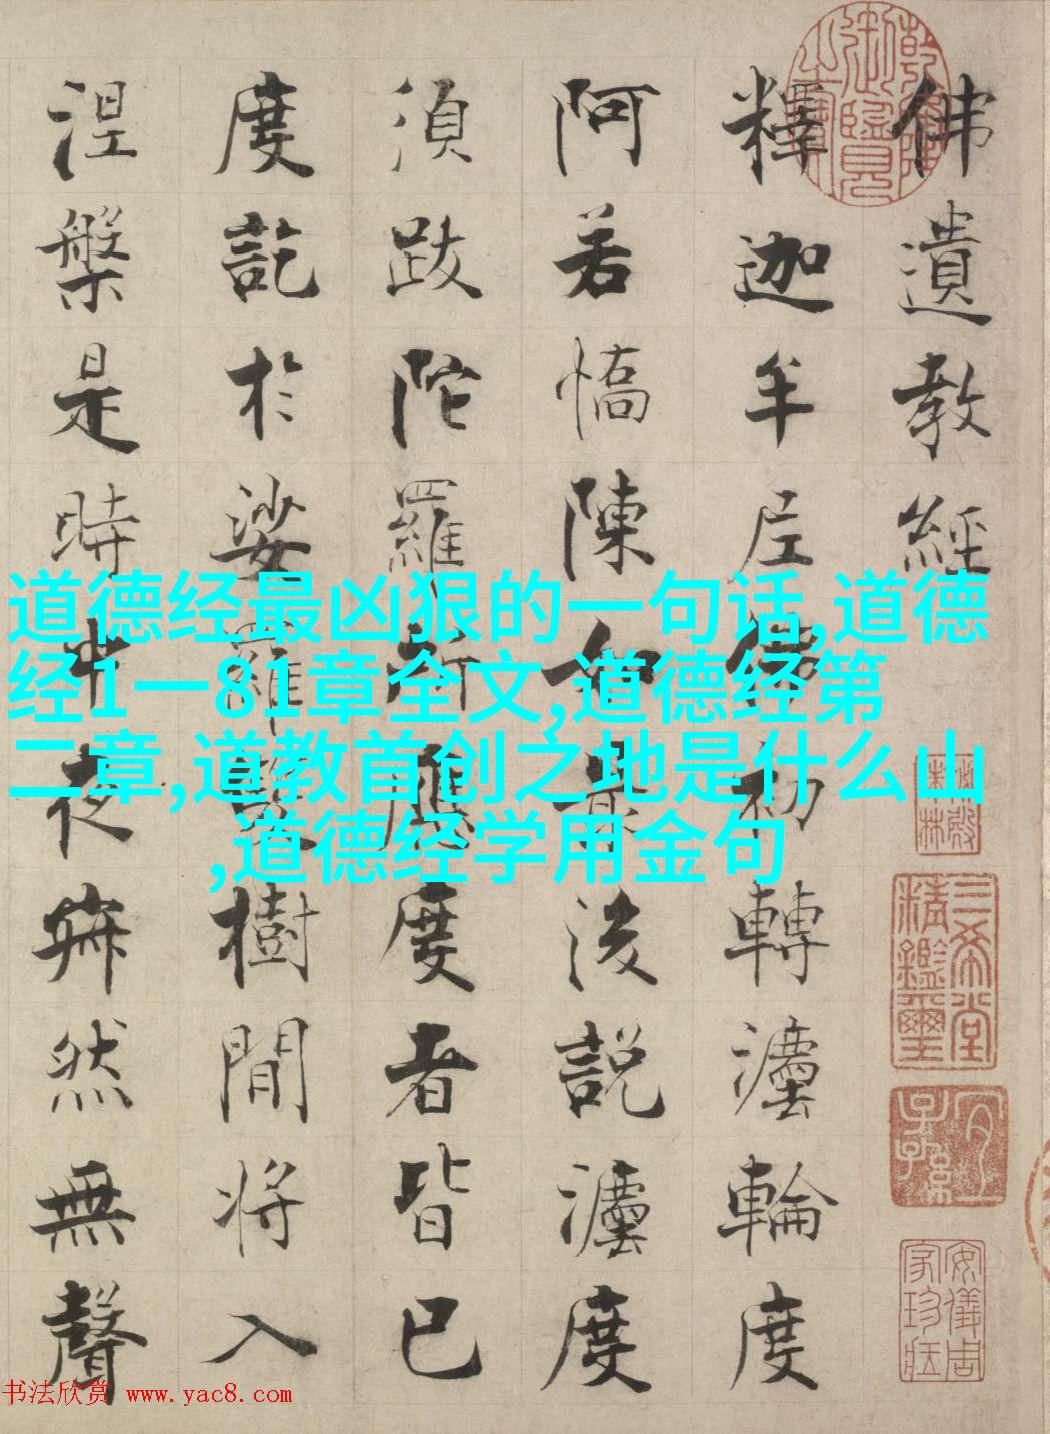 佛遺教經
釋迦牟尼佛初轉灋輪度
阿若憍陳如最後說灋度
須跋陀羅所應度者皆已
度訖於娑羅雙樹間將入
涅槃是時中夜寂然無聲
道德经最凶狠的一句话,道德
经1一81章全文,道德经第
二章,道教首创之地是什么山
,道德经学用金句
三希堂
精鑑璽
宜子孫
安儀周
家珍藏
书法欣赏 www.yac8.com